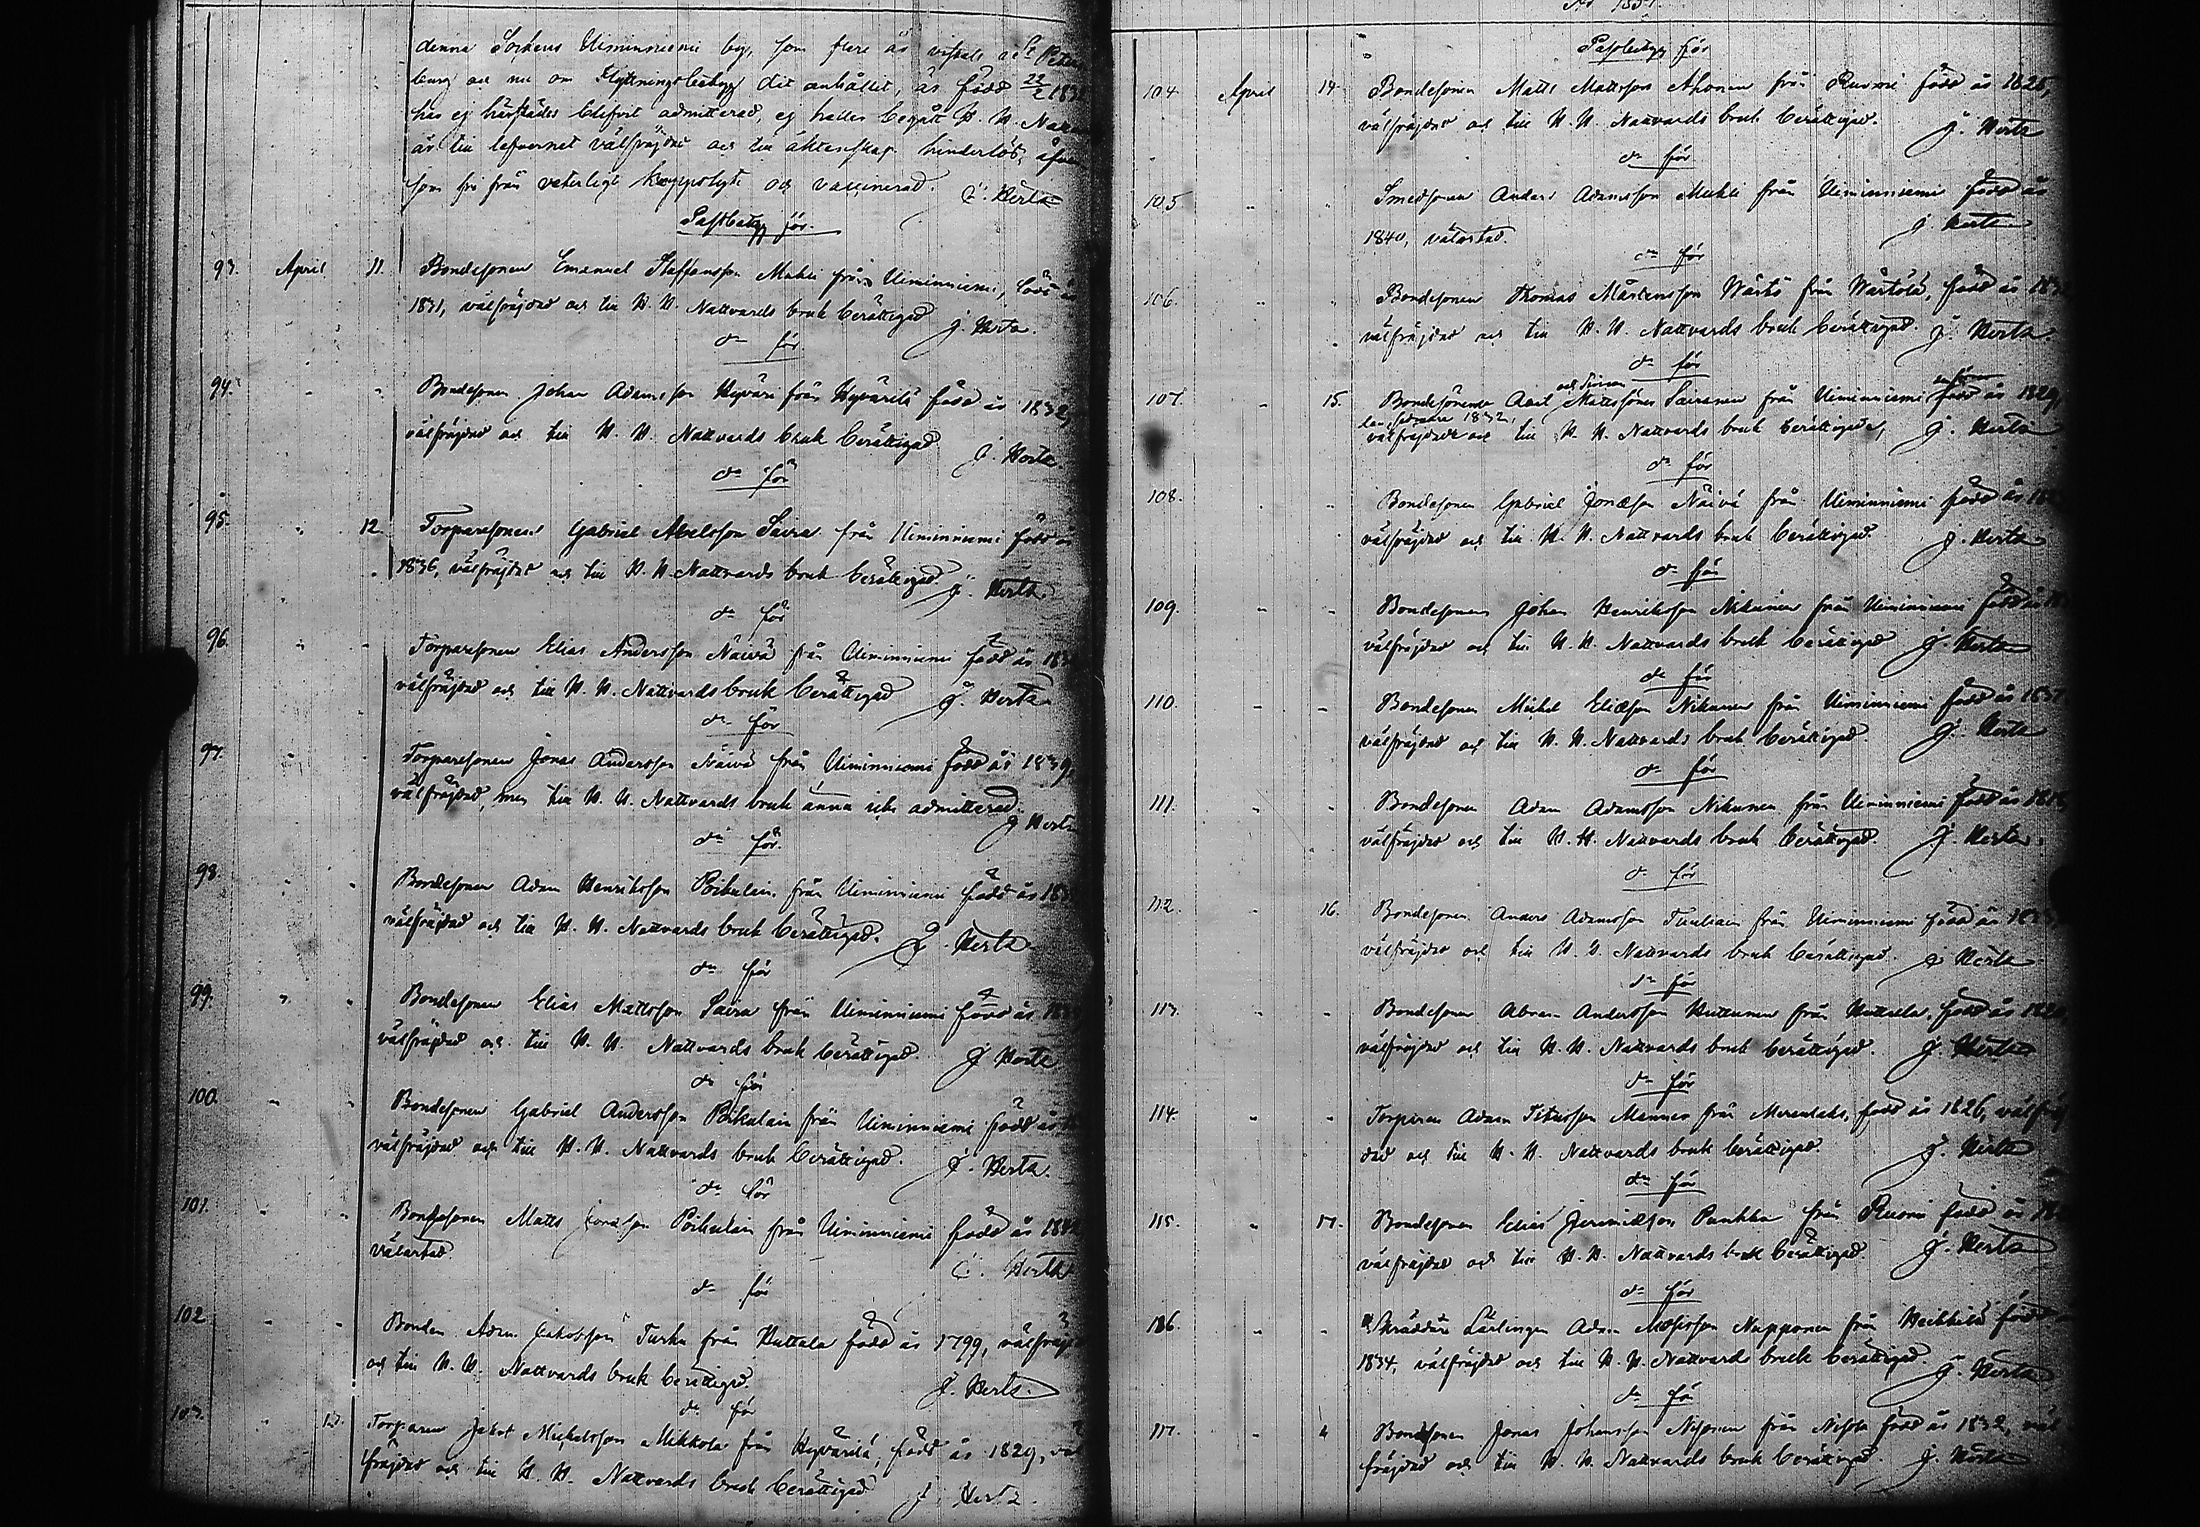 denna Sockens Uiminniemi by, som flere år vistats
burg och nu om Flyttningsbetyg dit anhållit, är född 22/2
har ej härstädes blifvit admitterad, ej heller begått H. H.
är till lefvernet välfrejdad och till äktenskap hinderlös,
som fri från veterligt kroppslyte och vaccinerad. J. Herta
Passbetyg för.
93. April 11. Bondesonen Emanuel Staffansson Muhli från Uiminniemi, född år
1831, välfrejdad och till H. H. Nattvards bruk berättigad J. Herta.
do för
94. " " Bondesonen Johan Adamsson Hyväri från Hyvärilä född år 1832,
välfrejdad och till H. H. Nattvards bruk berättigad J. Herta.
do för
95. " 12. Torparesonen Gabriel Abelsson Saira från Uiminniemi född år
1836, välfrejdad och till H. H. Nattvards bruk berättigad. J. Herta.
do för
96. " " Torparesonen Elias Andersson Näivä från Uiminniemi född år
välfrejdad och till H. H. Nattvards bruk berättigad J. Herta
do för
97. " " Torparesonen Jonas Andersson Näivä från Uiminniemi född år 1839,
välfrejdad, men till H. H. Nattvards bruk ännu icke admitterad. J Herta
do för.
98. " " Bondesonen Adam Henriksson Poikulain från Uiminniemi född år
välfrejdad och till H. H. Nattvards bruk berättigad. J. Herta
do för
99. " " Bondesonen Elias Mattsson Saira från Uiminniemi född år
välfrejdad och till H. H. Nattvards bruk berättigad. J Herta
do för
100. " " Bondesonen Gabriel Andersson Poikulain från Uiminniemi född år
välfrejdad och till H. H. Nattvards bruk berättigad. J. Herta.
do för
101. " " Bondesonen Matts Jonasson Poikulain från Uiminniemi född år
välartad J. Herta
do för
102 " " Bonden Adam Jakobsson Turku från Huttula född år 1799,
och till H. H. Nattvards bruk berättigad. J. Herta.
do för
103. " 13. Torparen Jakob Michelsson Mikkola från Hyvärilä, född år 1829, väl
frejdad och till H. H. Nattvards bruk berättigad J. Herta.
Passbetyg för
104 April 14. Bondesonen Matts Mattsson Ahonen från född år 1825,
välfrejdad och till H. H. Nattvards bruk berättigad. J. Herta
do för
105 " " Smedsonen Anders Adamsson Muhli från Uiminniemi född år
1840, välartad. J. Herta
do för
106. " " Bondesonen Thomas Mårtensson Wärtö från född år
välfrejdad och till H. H. Nattvards bruk berättigad. J. Herta.
do för
107. " 15. Bondesönerne Axel och Simon Mattssöner Sairanen från Uiminniemi född år 1829,
den sednare 1832
välfrejdade och till H. H. Nattvards bruk berättigade, J. Herta
do för
108. " " Bondesonen Gabriel Jonasson Näivä från Uiminniemi född år
välfrejdad och till H. H. Nattvards bruk berättigad. J. Herta
do för
109. " " Bondesonen Johan Henriksson Nikunen från Uiminniemi född år
välfrejdad och till H. H. Nattvards bruk berättigad J. Herta
do för
110. " " Bondesonen Michel Eliasson Nikunen från Uiminniemi född år
välfrejdad och till H. H. Nattvards bruk berättigad J. Herta
do för
111. " " Bondesonen Adam Adamsson Nikunen från Uiminniemi född år
välfrejdad och till H. H. Nattvards bruk berättigad. J. Herta.
do för
112. " 16. Bondesonen Anders Adamsson från Uiminniemi född år
välfrejdad och till H. H. Nattvards bruk berättigad. J Herta
do för
113. " " Bondesonen Abram Andersson Huttunen från Huttula, född år
välfrejdad och till H. H. Nattvards bruk berättigad. J. Herta
do för
114. " " Torparen Adam Petersson från född år 1826, välfrej
dad och till H. H. Nattvards bruk berättigad. J. Herta
do för
115. " 17. Bondesonen Elias Jeremiasson från född år
välfrejdad och till H. H. Nattvards bruk berättigad. J. Herta
do för
116. " " Skräddare Lärlingen Adam Mosisson Napponen från Heikkilä född år
1834, välfrejdad och till H. H. Nattvards bruk berättigad. J. Herta
do för
117. " " Bondsonen Jonas Johansson från född år 1832, väl
frejdad och till H. H. Nattvards bruk berättigad. J. Herta